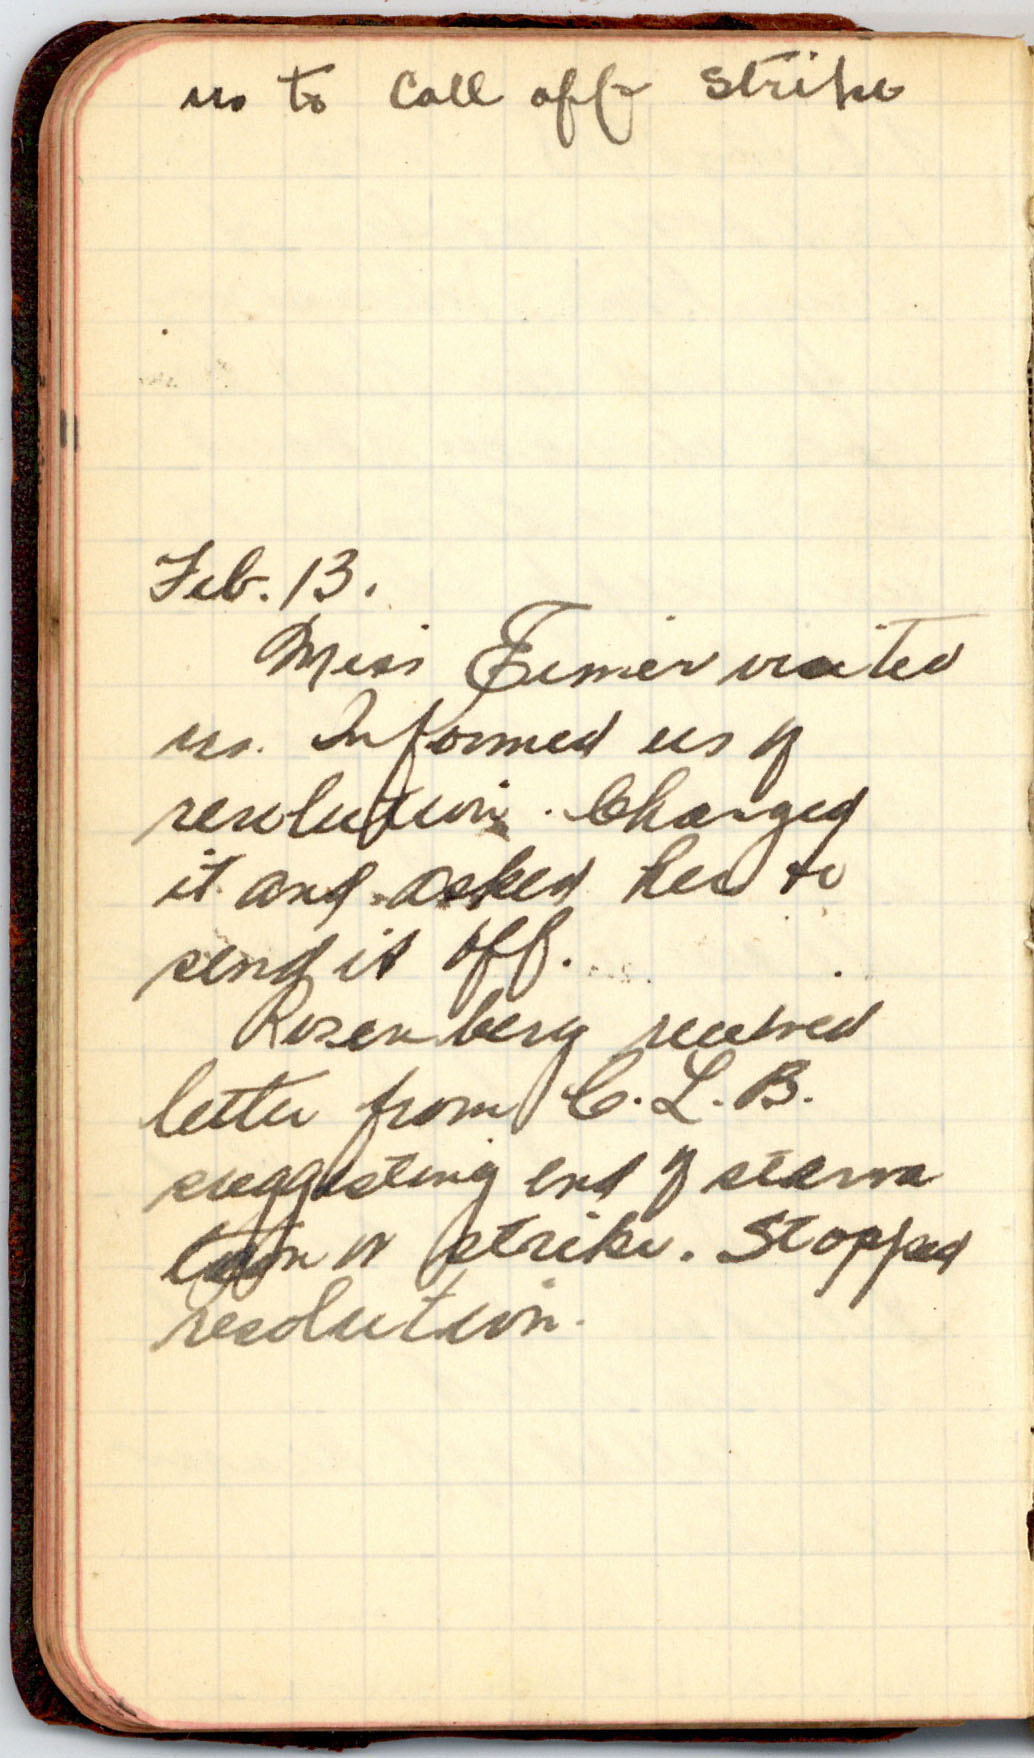 us to Call off strike
Feb. 13.
Miss visited
us. Informed us of
resolution. Changed
it and asked her to
send it off.
Rosenberg received
letter from C. L. B.
suggesting end of starva
tion strike. Stopped
resolution.